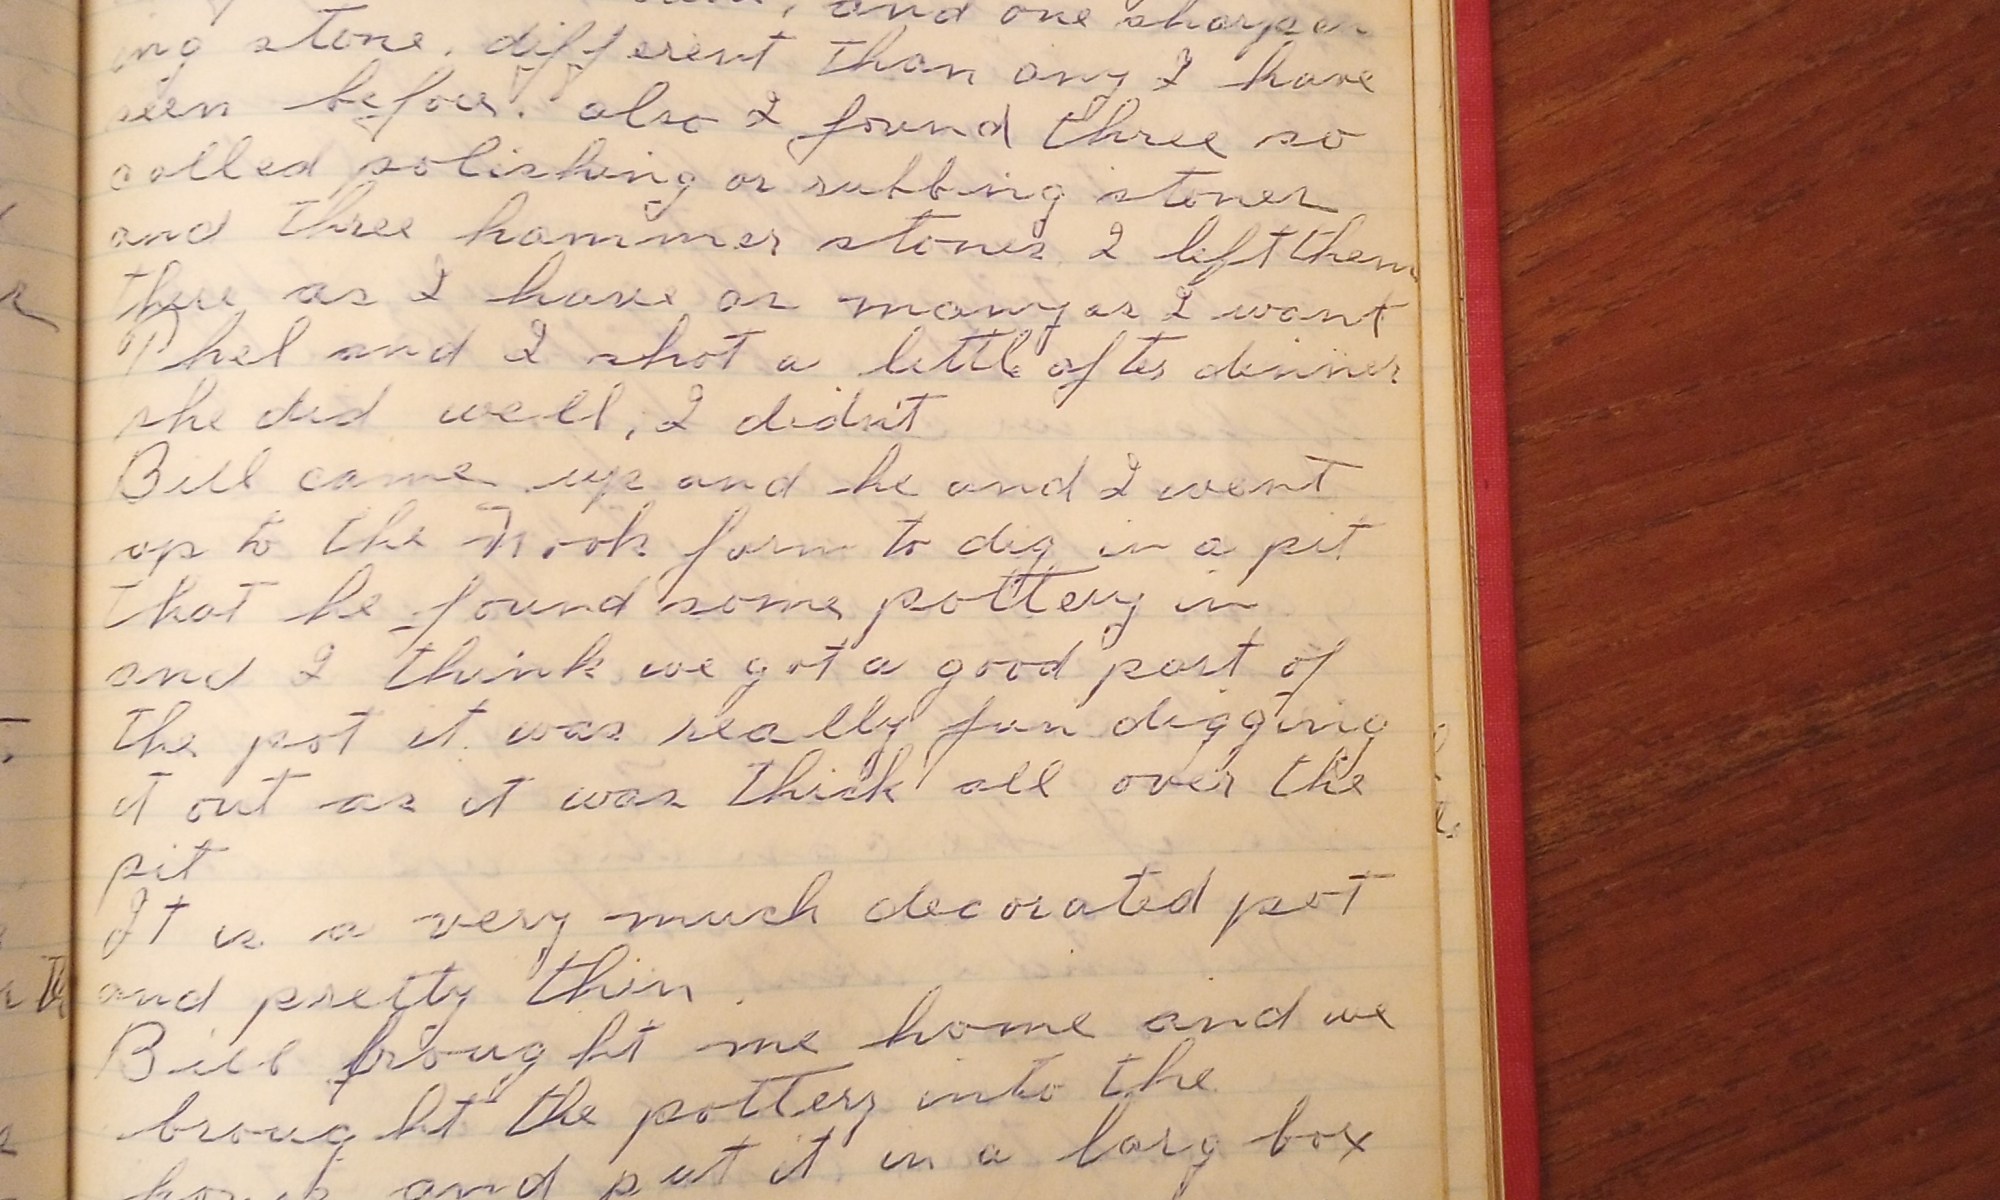 and one sharpen
ing stone. different than any I have
seen before. also I found three so
called polishing or rubbing stones
and three hammer stones I left them
there as I have as many as I want
Phel and I shot a little after dinner
she did well, I didn't
Bill came up and he and I went
up to the Nook farm to dig in a pit
that he found some pottery in
and I think we got a good part of
the pot it was really fun digging
it out as it was thick all over the
pit
It is a very much decorated pot
and pretty thin.
Bill brought me home and we
brought the pottery into the
house and put it in a larg box